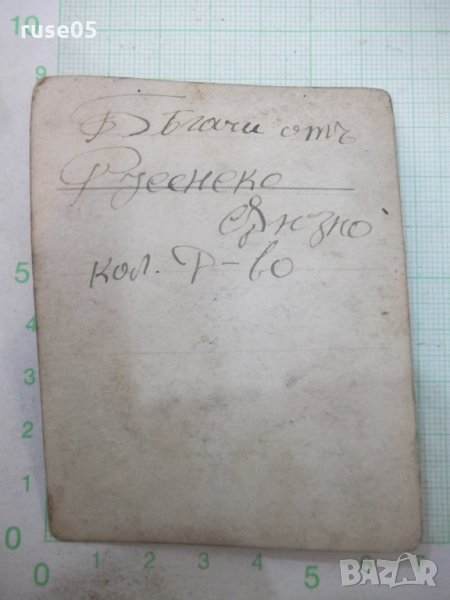 ruse05
Бѣгачи отъ
Русенско
Окръжно
кол. д-во
BAZAR
10
9
5
4
3
2
1
0
0
1
2
3
4
5
6
7